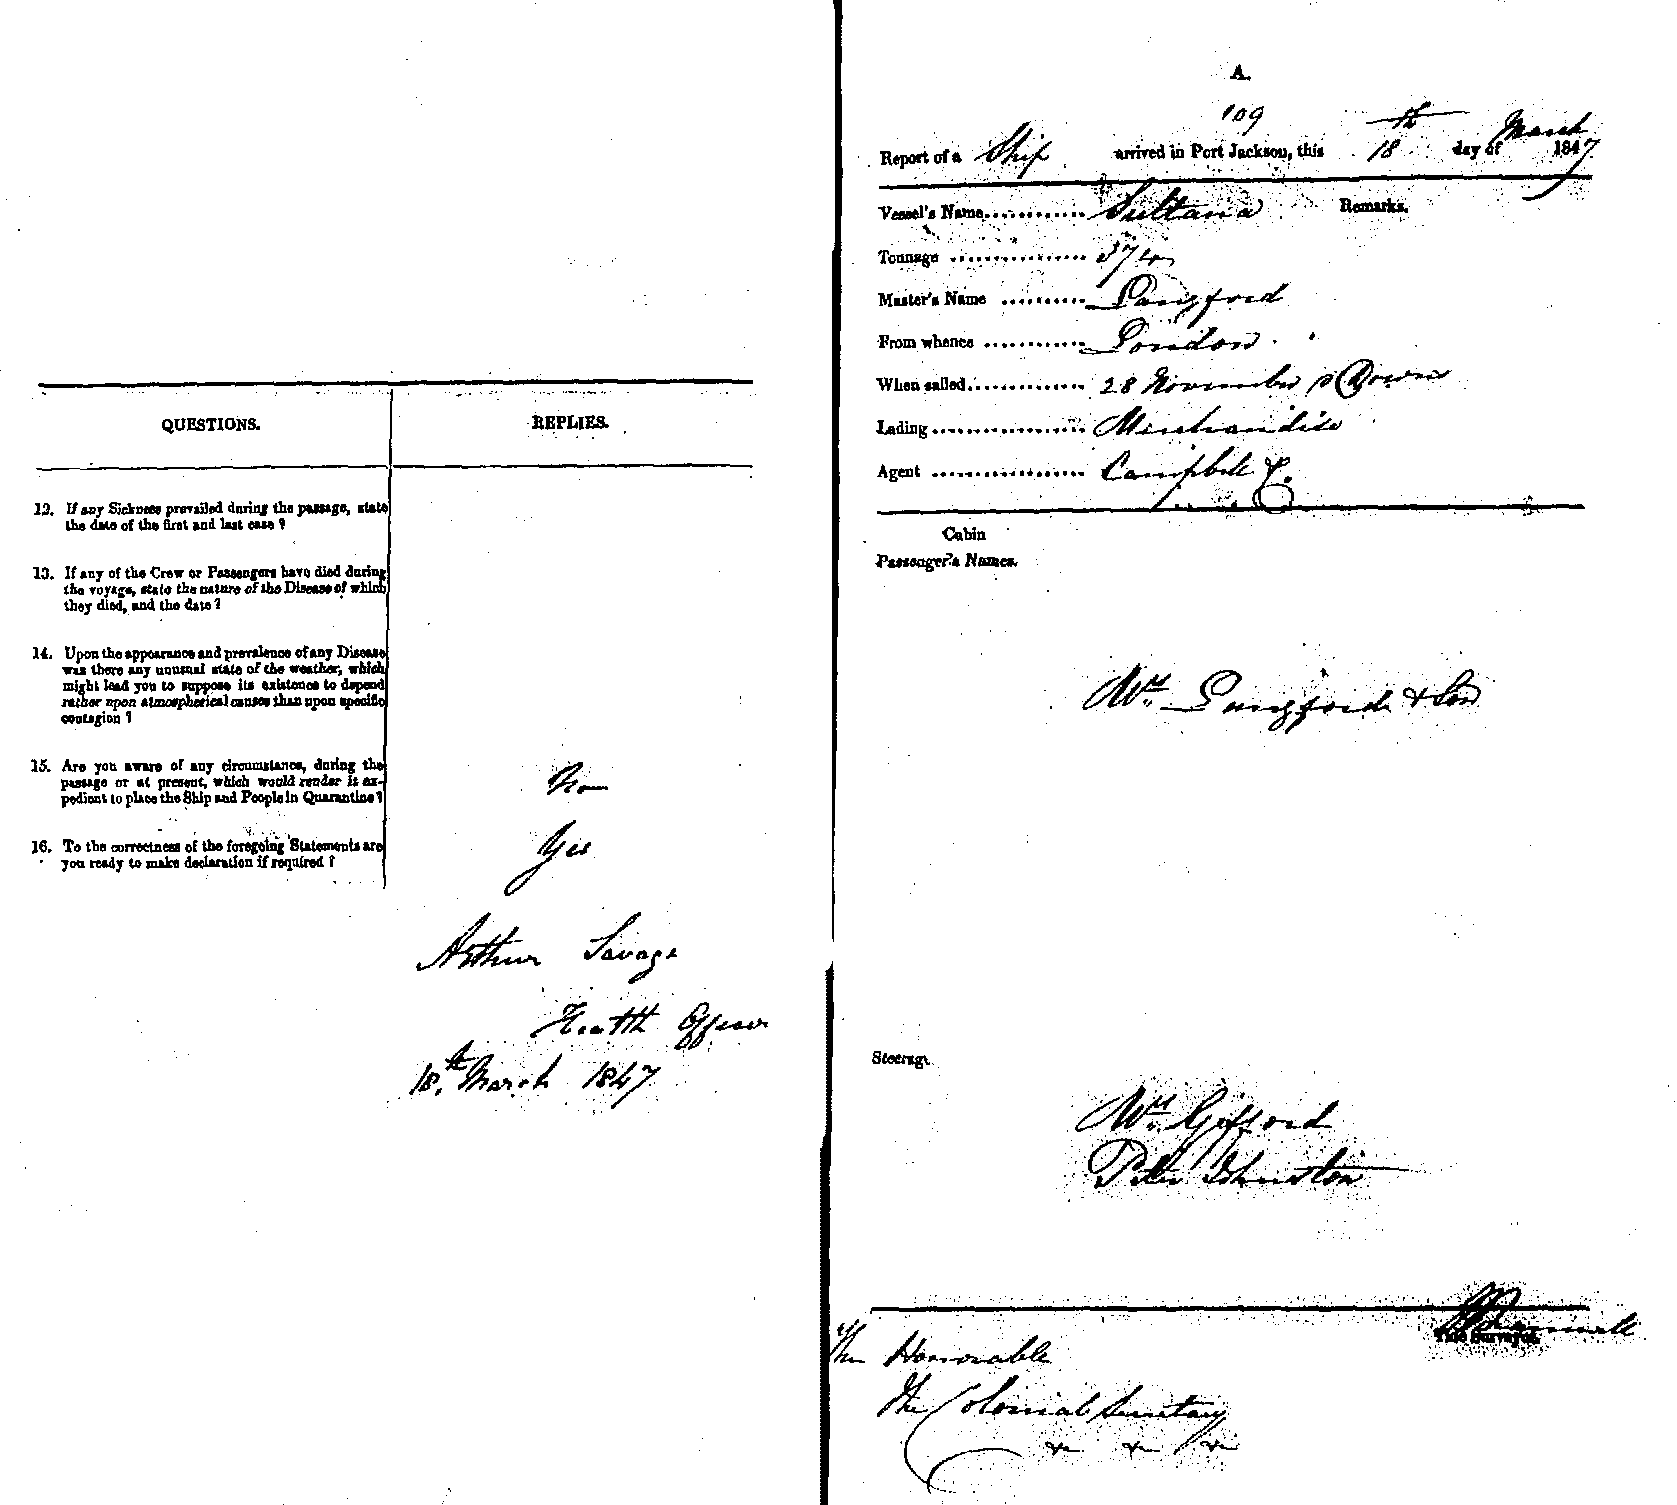 QUESTIONS.
REPLIES.
12. If any Sickness prevailed during the passage, state
the date of the first and last case ?
13. If any of the Crew or Passengers have died during
the voyage, state the nature of the Disease of which
they died, and the date ?
14. Upon the appearance and prevalence of any Disease
was there any unusual state of the weather, which
might lead you to suppose its existence to depend
rather upon atmospherical causes than upon specific
contagion ?
15. Are you aware of any circumstance, during the
passage or at present, which would render it ex-
pedient to place the Ship and People in Quarantine ?
No
16. To the correctness of the foregoing Statements are
you ready to make declaration if required ?
Yes
Arthur Savage
Health Officer
18th March 1847
A.
109
Report of a Ship arrived in Port Jackson, this 18th day of March 1847
Vessel's Name............ Sultana Remarks.
Tonnage ................
Master's Name .......... Langford
From whence ............ London
When sailed.............. 28 November Downs
Lading .................. Merchandise
Agent .................... Campbell
Cabin
Passenger's Names.
Langford & Son
Steerage.
Gifford
Peter Johnston
Tide Surveyor.
The Honorable
The Colonial Secretary
&c &c &c